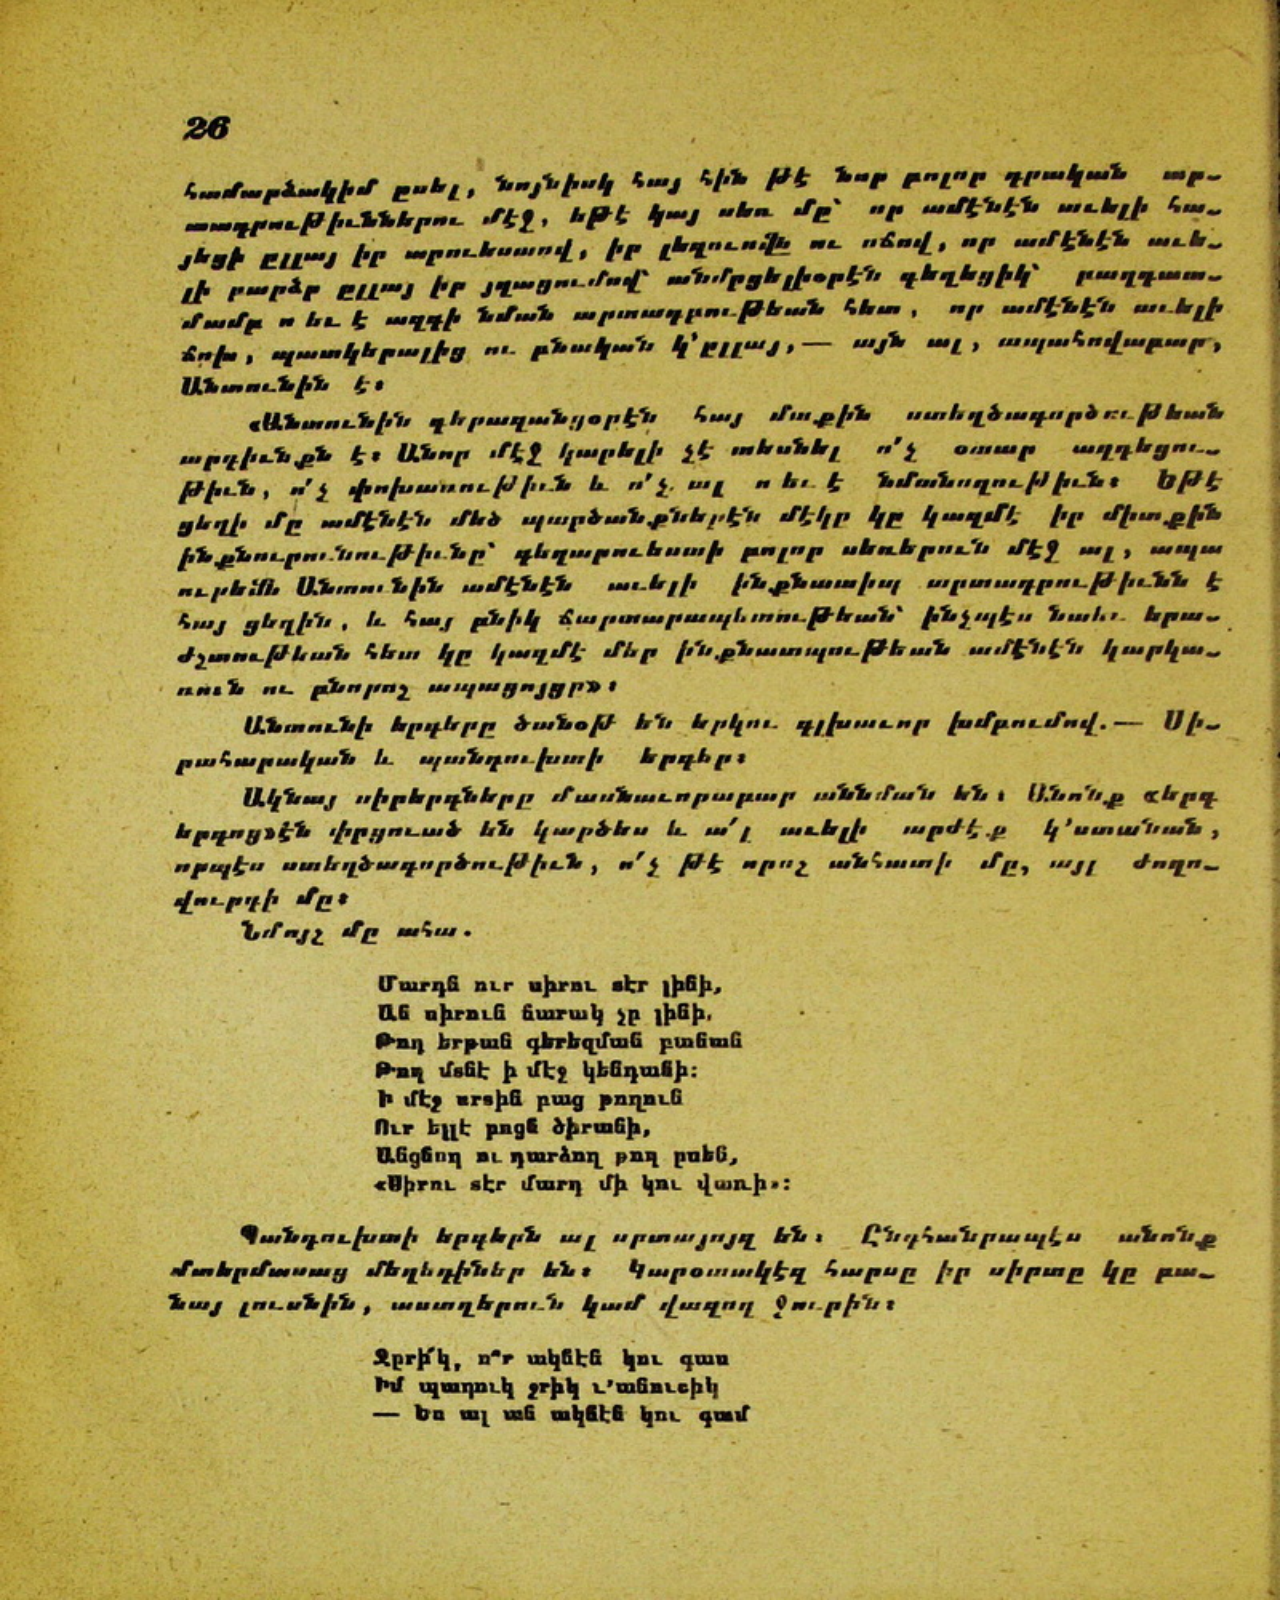 26
համարձակիմ ըսել, նոյնիսկ հայ հին թէ նոր բոլոր գրական ար-
տադրութիւններու մէջ, եթէ կայ սեռ մը՝ որ ամէնէն աւելի հա-
յեցի ըլլայ իր արուեստով, իր լեզուովն ու ոճով, որ ամէնէն աւե-
լի բարձր ըլլայ իր յղացումով՝ անմրցելիօրէն գեղեցիկ՝ բաղդատ-
մամբ ո եւ է ազգի նման արտադրութեան հետ, որ ամէնէն աւելի
ճոխ, պատկերալից ու բնական կ՚ըլլայ,— այն ալ, ապահովաբար,
Անտունին է։
«Անտունին գերազանցօրէն հայ մտքին ստեղծագործութեան
արդիւնքն է։ Անոր մէջ կարելի չէ տեսնել ո՛չ օտար ազդեցու-
թիւն, ո՛չ փոխառութիւն և ո՛չ ալ ո եւ է նմանողութիւն։ Եթէ
ցեղի մը ամէնէն մեծ պարծանքներէն մէկը կը կազմէ իր միտքին
ինքնուրունութիւնը՝ գեղարուեստի բոլոր սեռերուն մէջ ալ, ապա
ուրեմն Անտունին ամէնէն աւելի ինքնատիպ արտադրութիւնն է
հայ ցեղին, և հայ բնիկ ճարտարապետութեան՝ ինչպէս նաեւ երա-
ժշտութեան հետ կը կազմէ մեր ինքնատպութեան ամէնէն կարկա-
ռուն ու բնորոշ ապացոյցը»։
Անտունի երգերը ծանօթ են երկու գլխաւոր խմբումով.— Սի-
րահարական և պանդուխտի երգեր։
Ակնայ սիրերգները մասնաւորաբար աննման են։ Անոնք «երգ
երգոց»էն փրցուած են կարծես և ա՛լ աւելի արժէք կ՚ստանան,
որպէս ստեղծագործութիւն, ո՛չ թէ որոշ անհատի մը, այլ ժողո-
վուրդի մը։
Նմոյշ մը ահա.
Մարդն ուր սիրու տէր լինի,
Ան սիրուն ճարակ չը լինի.
Թող երթան գերեզման բանան
Թող մտնէ ի մէջ կենդանի։
Ի մէջ սրտին բաց թողուն
Ուր ելլէ բոցն ծիրանի,
Անցնող ու դարձող թող ըսեն,
«Սիրու տէր մարդ մի կու վառի»։
Պանդուխտի երգերն ալ սրտայոյզ են։ Ընդհանրապէս անոնք
մտերմասաց մեղեդիներ են։ Կարօտակէզ հարսը իր սիրտը կը բա-
նայ լուսնին, աստղերուն կամ վազող ջուրին։
Ջըրի՛կ, ո՞ր ակնէն կու գաս
Իմ պաղուկ ջրիկ ւ՚անուշիկ
— Ես ալ ան ակնէն կու գամ